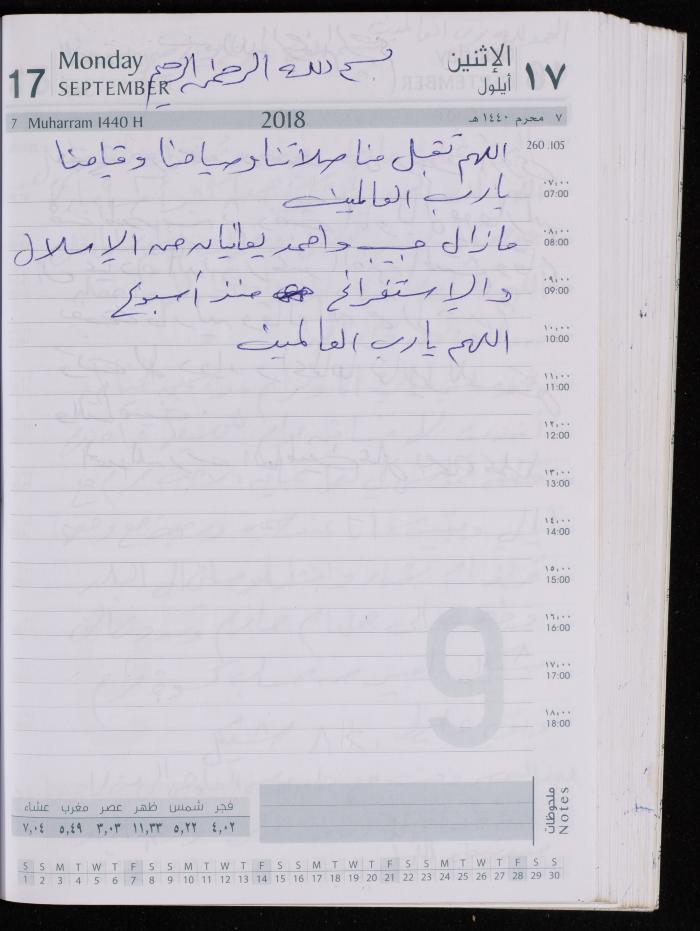 17 Monday SEPTEMBER
بسم الله الرحمن الرحيم
الإثنين أيلول ١٧
7 Muharram 1440 H 2018 ٧ محرم ١٤٤٠ هـ
اللهم تقبل منا صلاتنا وصيامنا وقيامنا 260 .105
يارب العالمين ٠٧,٠٠ 07:00
مازال حبيب واحمد يعانيان من الإسهال ٠٨,٠٠ 08:00
والإستفراغ منذ أسبوع ٠٩,٠٠ 09:00
اللهم يارب العالمين ١٠,٠٠ 10:00
١١,٠٠ 11:00
١٢,٠٠ 12:00
١٣,٠٠ 13:00
١٤,٠٠ 14:00
١٥,٠٠ 15:00
١٦,٠٠ 16:00
9
١٧,٠٠ 17:00
١٨,٠٠ 18:00
ملحوظات Notes
فجر شمس ظهر عصر مغرب عشاء
٤,٠٢ ٥,٢٢ ١١,٣٣ ٣,٠٣ ٥,٤٩ ٧,٠٤
S S M T W T F S S M T W T F S S M T W T F S S M T W T F S S
1 2 3 4 5 6 7 8 9 10 11 12 13 14 15 16 17 18 19 20 21 22 23 24 25 26 27 28 29 30